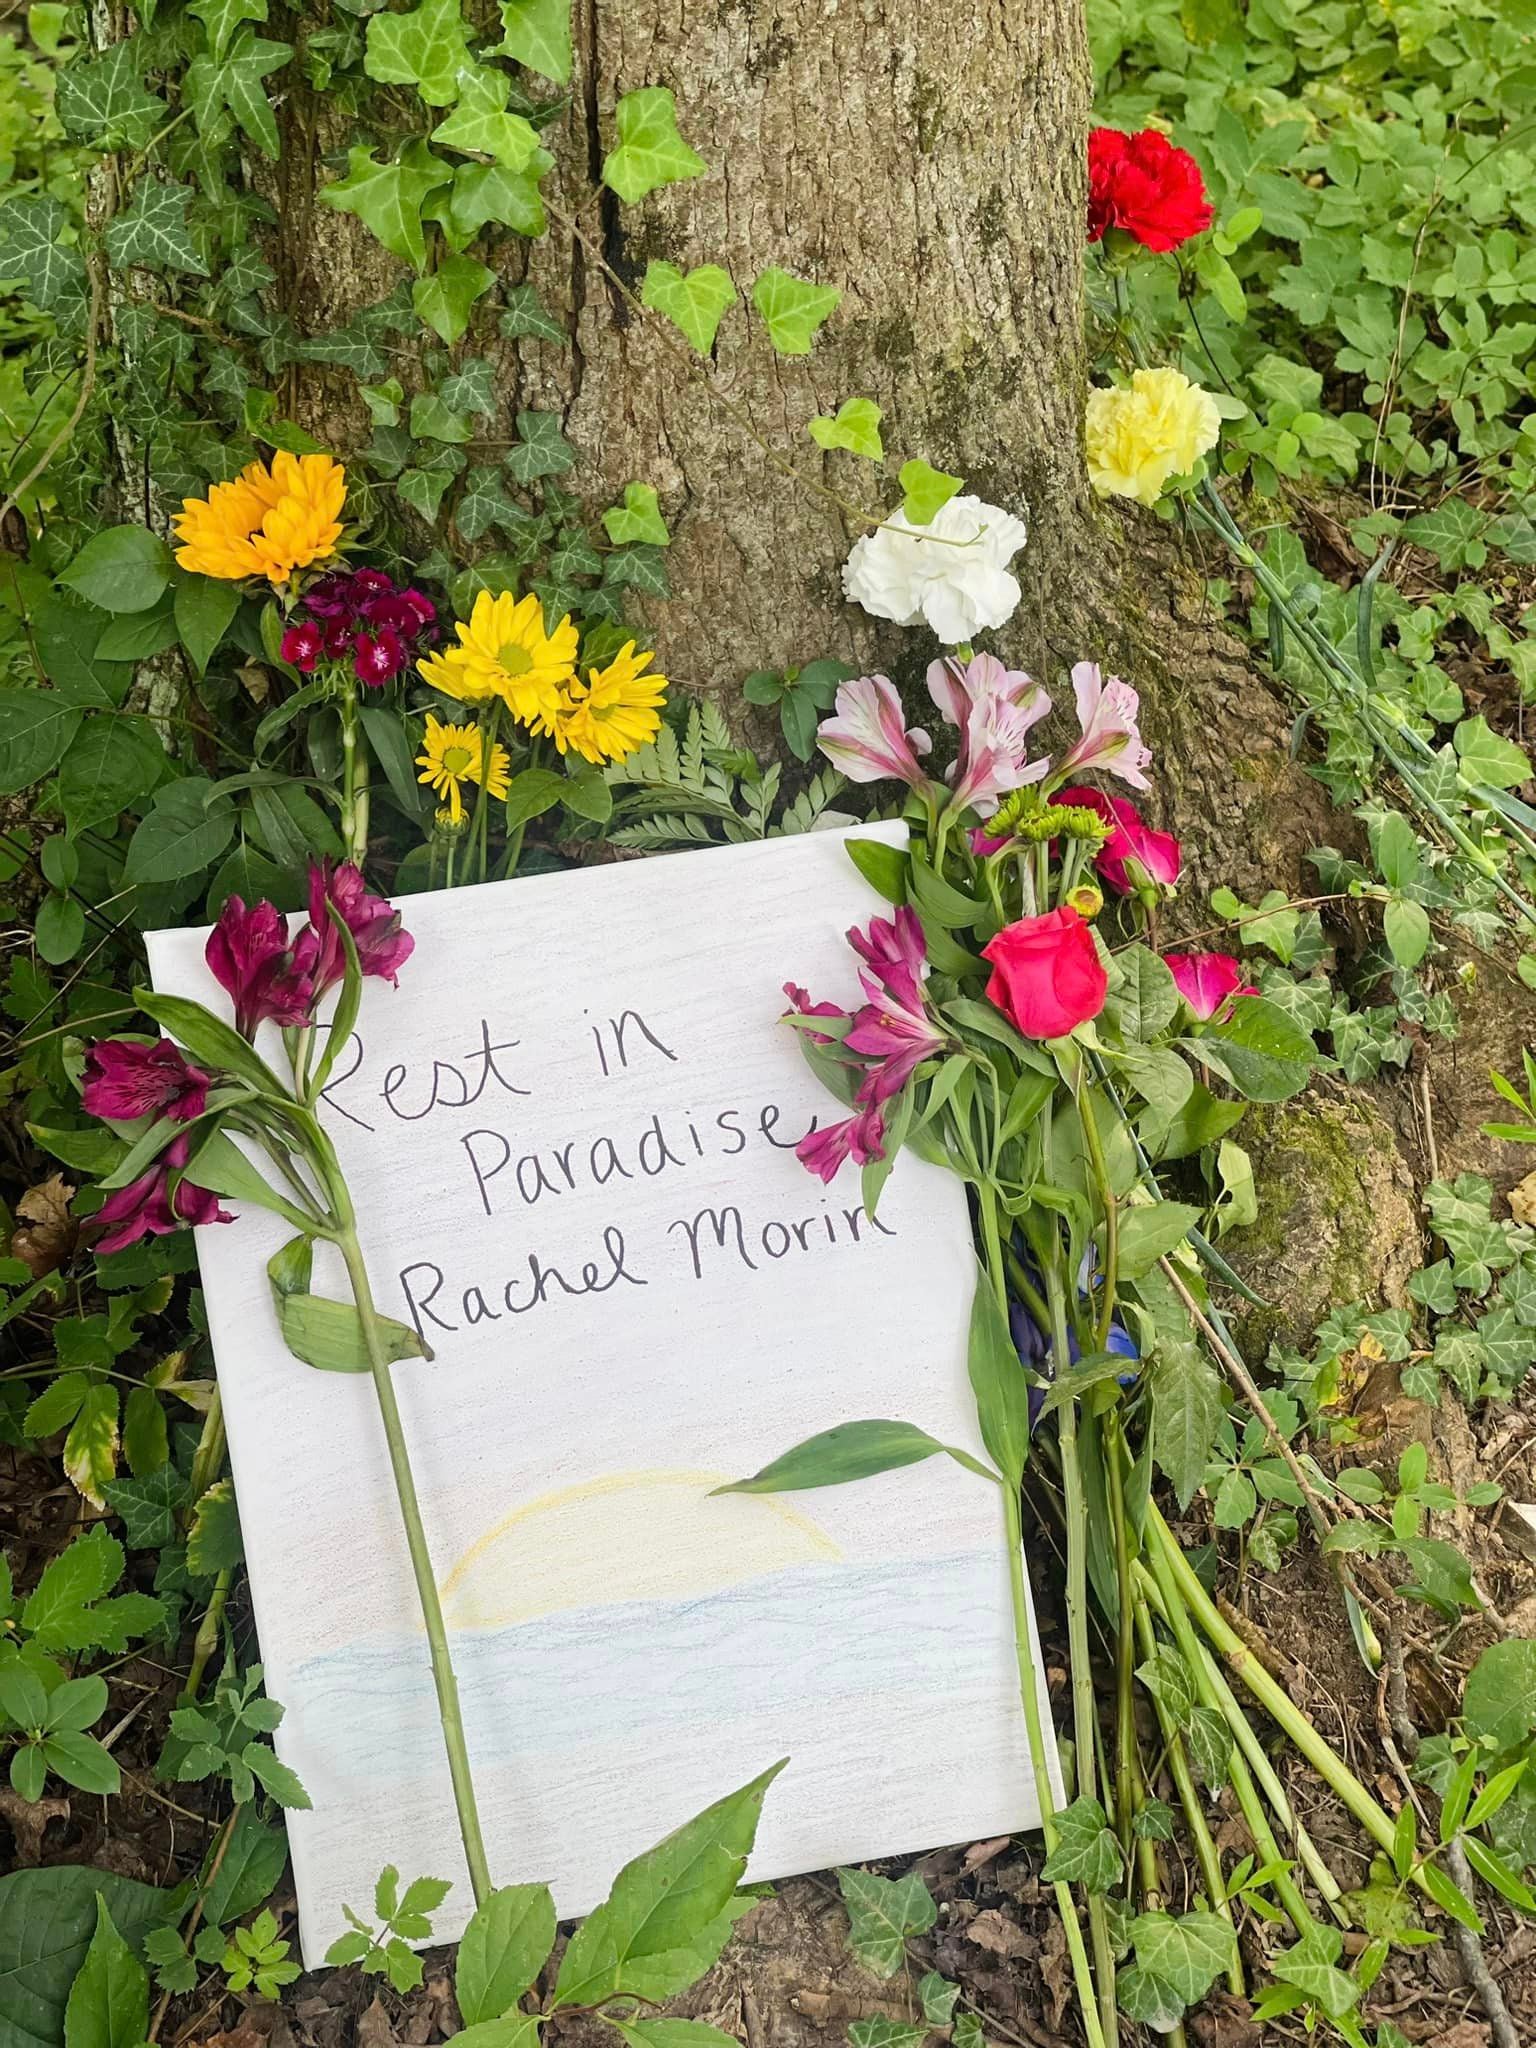 Rest in
Paradise
Rachel Morin